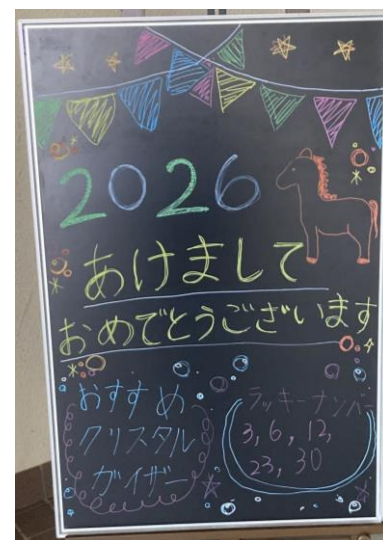 2026
あけまして
おめでとうございます
おすすめ
クリスタル
ガイザー
ラッキーナンバー
3, 6, 12,
23, 30